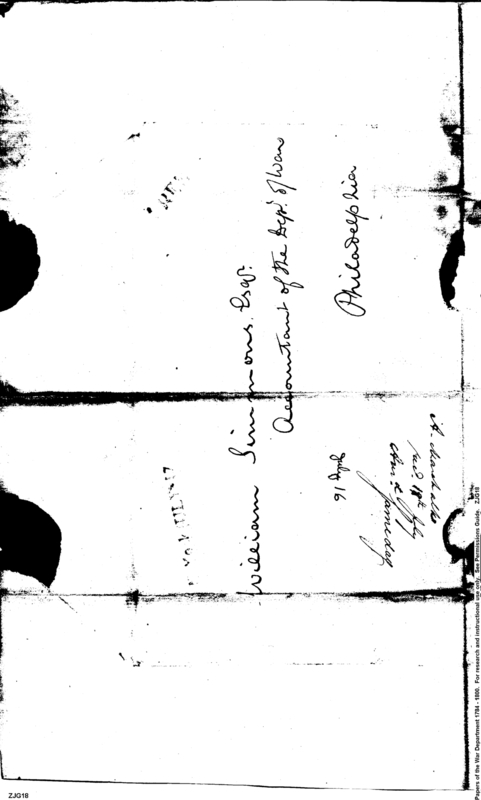 William Simmons. Esqr.
Accountant of the Dept. of War
Philadelphia
JULY 17
91
recd. 18th July
ZJG18
Papers of the War Department 1784 - 1800. For research and instructional use only. See Permissions Guide. ZJG18